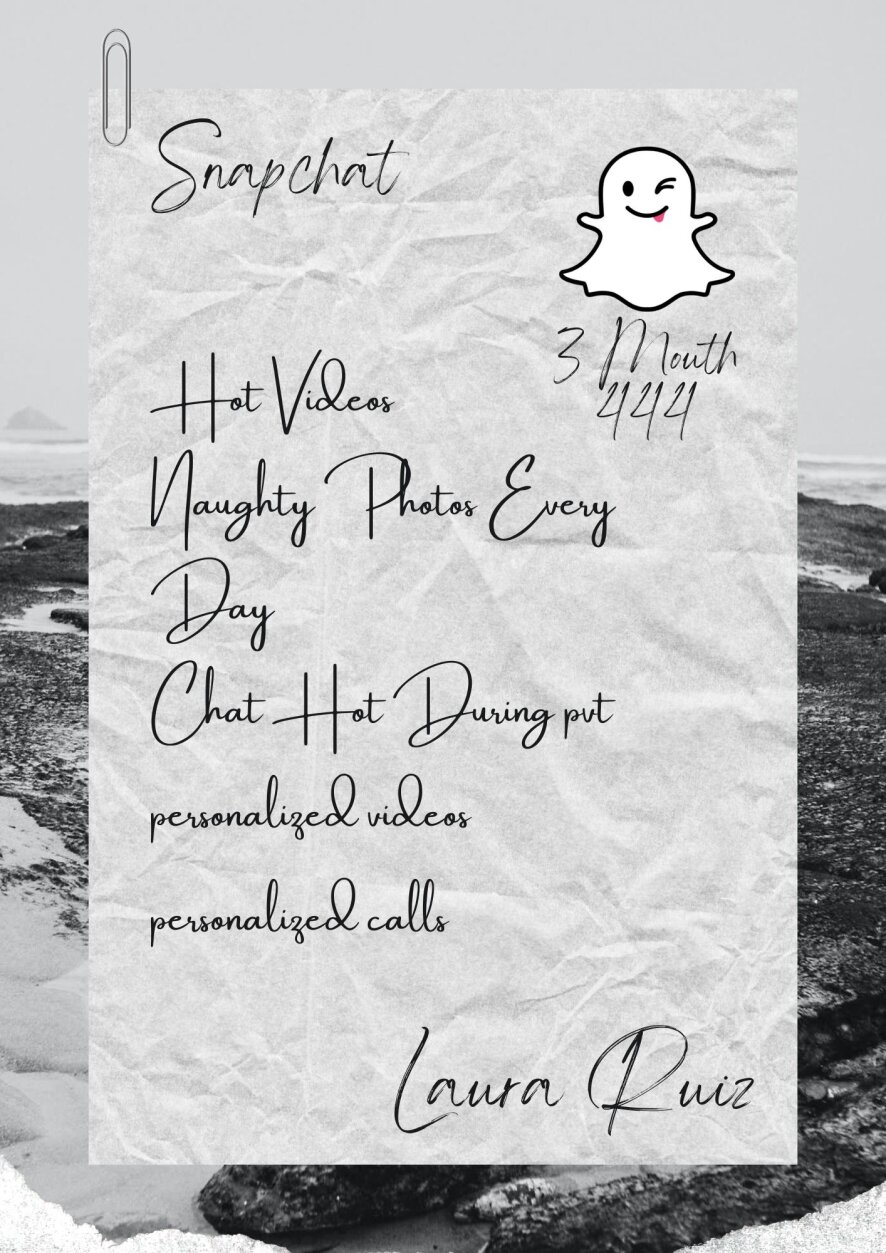 Snapchat
3 Mouth
444
Hot Videos
Naughty Photos Every
Day
Chat Hot During pvt
personalized videos
personalized calls
Laura Ruiz